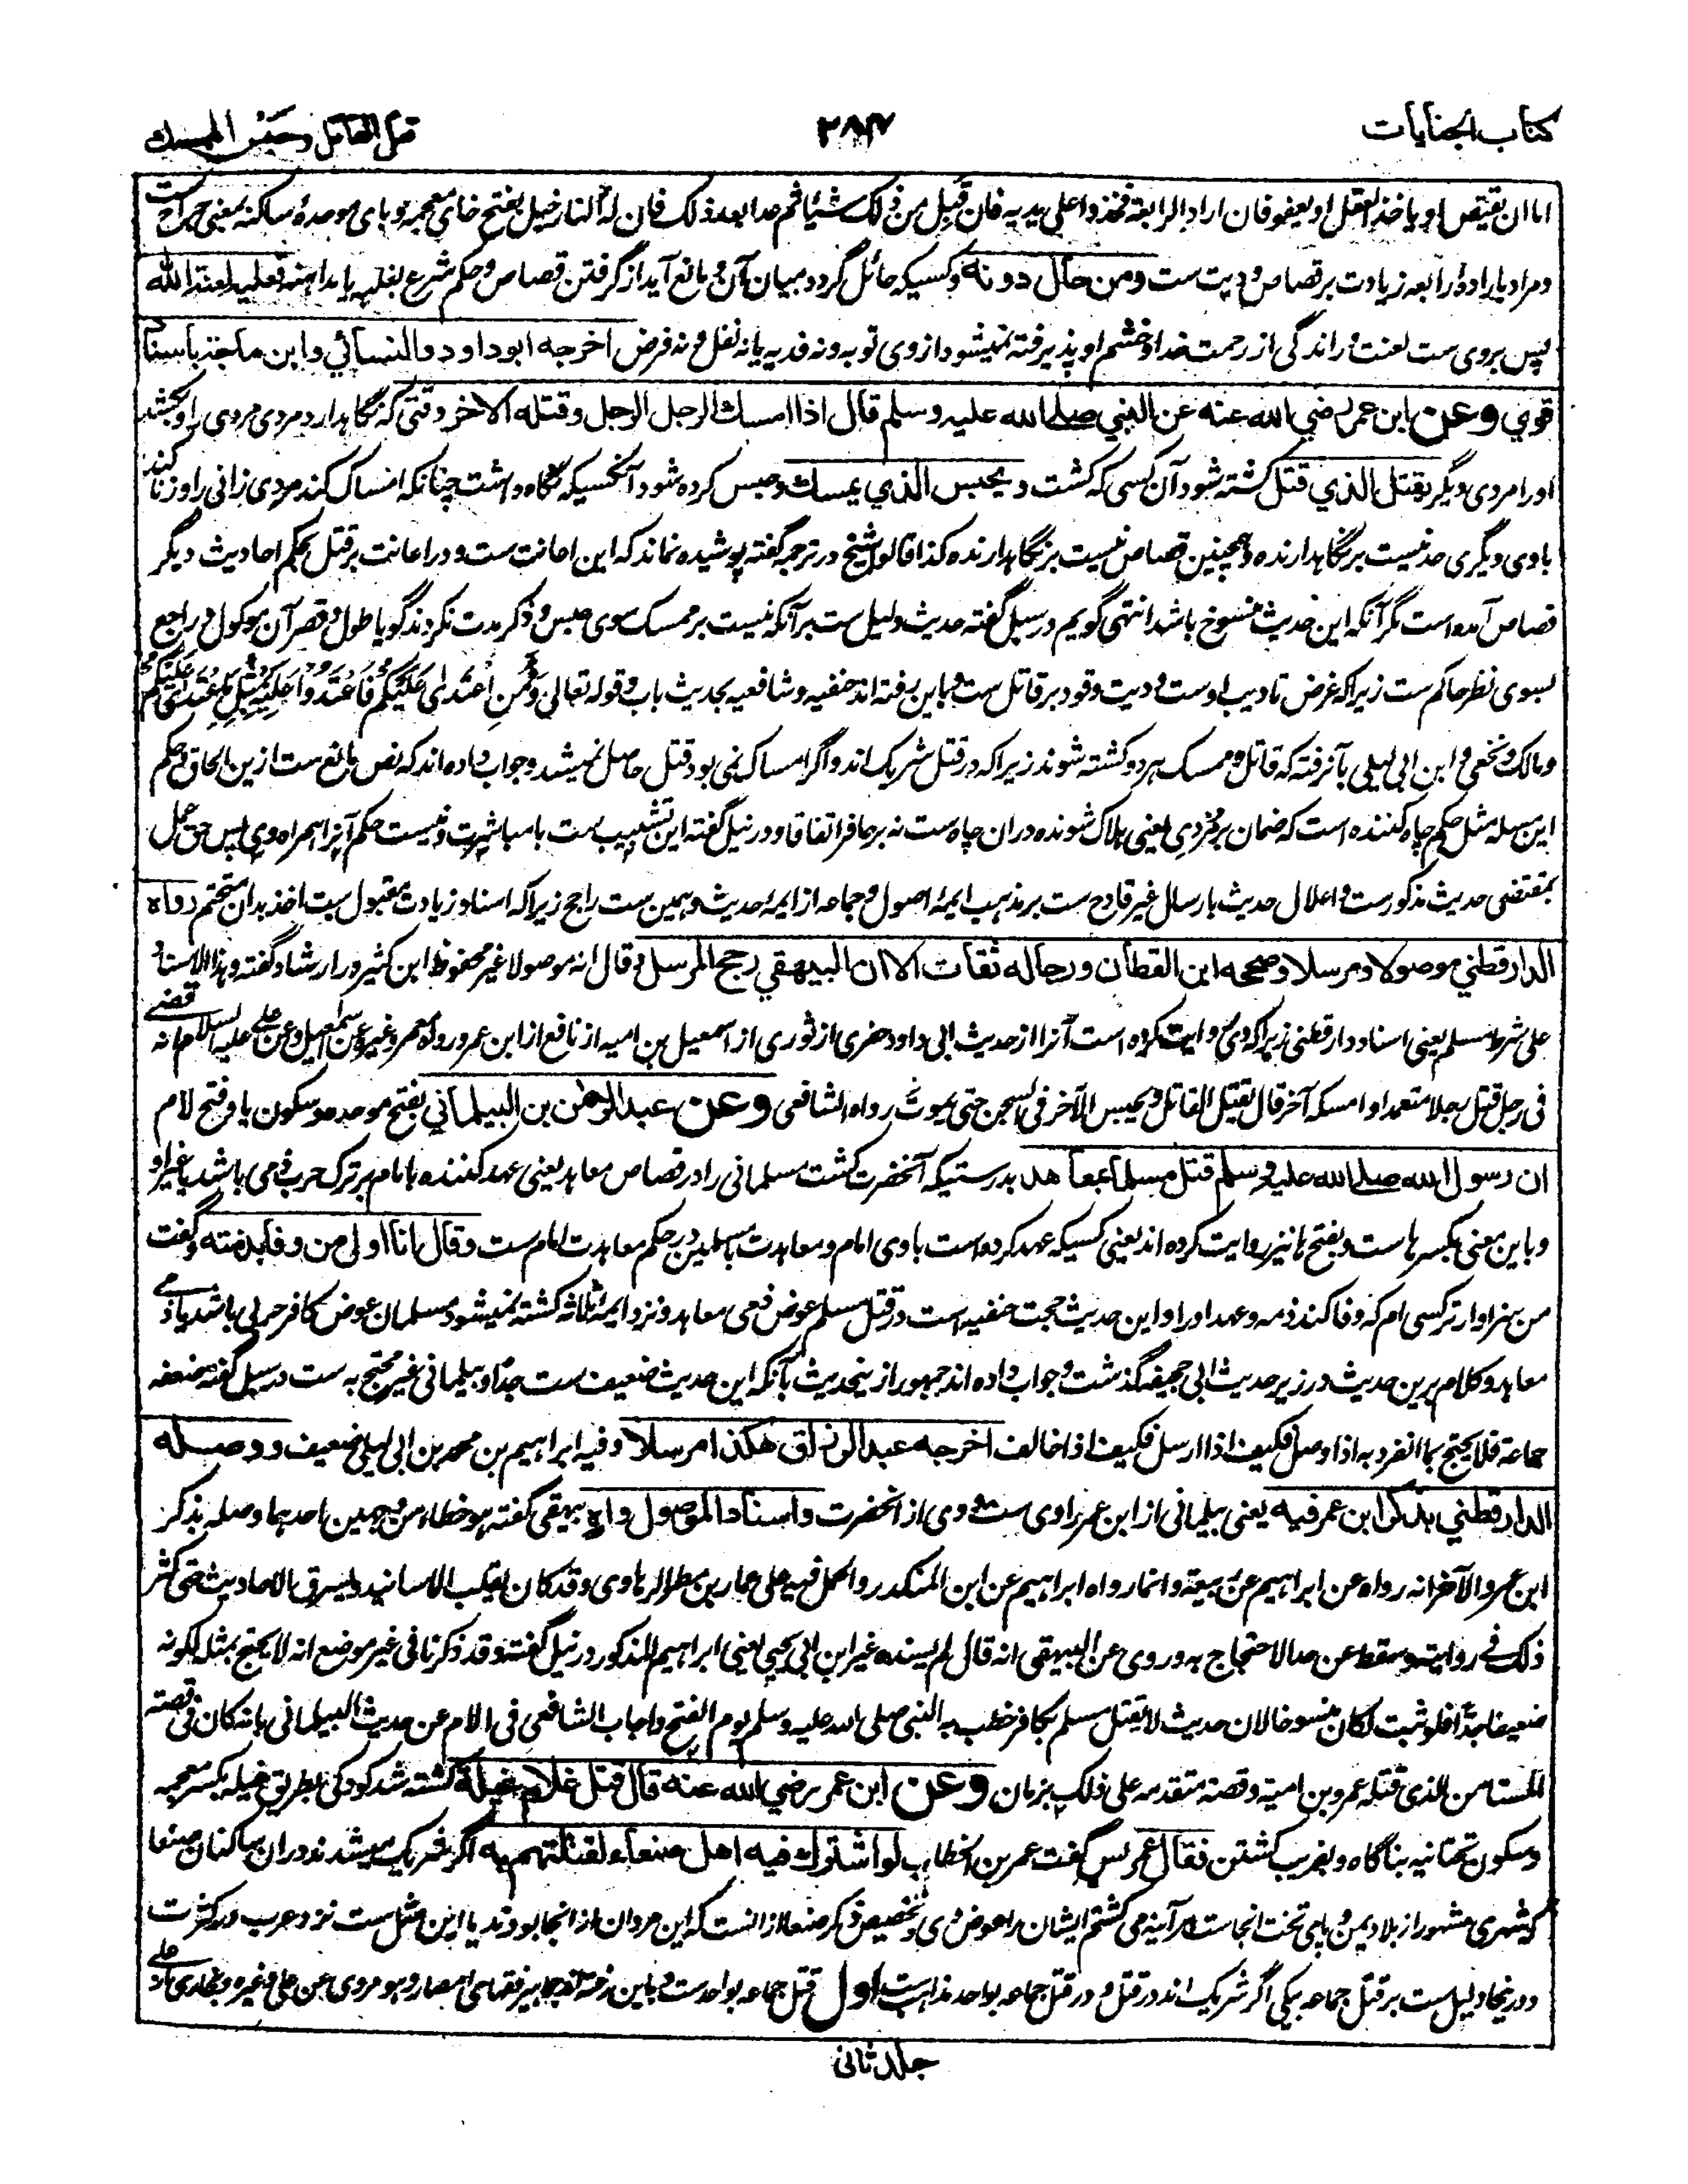 كتاب الجنايات
٣٨٧
قتل القاتل وحبس الممسك
اما ان يقتص او ياخذ العقل او يعفو فان اراد الرابعة فخذوا على يديه فان قبل من ذلك شيئا ثم عدا بعد ذلك فان له النار خبل بفتح خاى معجمه و باى موحدهٔ ساكنه بمعنى جراحت
و مراد باراد‌هٔ رابعه زيادت بر قصاص و ديت ست ومن حال دونه و كسيكه حائل گردد ميان آن و مانع آيد از گرفتن قصاص و حكم شرع بغلبه يا مداهنه فعليه لعنة الله
پس بروى ست لعنت و راندگى از رحمت خدا و خشم او پذيرفته نميشود از وى توبه و نه فديه يا نه نفل و نه فرض اخرجه ابو داود والنسائي وابن ماجة باسناد
قوي وعن ابن عمر رضي الله عنه عن النبي صلى الله عليه وسلم قال اذا امسك الرجل الرجل وقتله الاخر وقتى كه نگاهدارد مردى مردى را و بكشد
او را مردى ديگر يقتل الذي قتل كشته شود آن كسى كه كشت ويحبس الذي يمسك و حبس كرده شود آنكسيكه نگاه داشت چنانكه امساك كند مردى زانى را و زنا كند
با وى ديگرى حد نيست بر نگاهدارنده و همچنين قصاص نيست بر نگاهدارنده كذا قالوا شيخ در ترجمه گفته پوشيده نماند كه اين اعانت ست و در اعانت بر قتل بحكم احاديث ديگر
قصاص آمده است مگر آنكه اين حديث منسوخ باشد انتهى گويم در سبل گفته حديث دليل ست بر آنكه نيست بر ممسك سوى حبس و ذكر مدت نكردند گويا طول و قصر آن موكول و راجع
بسوى نظر حاكم ست زيرا كه غرض تاديب اوست و ديت و قود بر قاتل ست و باين رفته اند حنفيه و شافعيه بحديث باب و قوله تعالى فَمَنِ اعْتَدَى عَلَيْكُمْ فَاعْتَدُوا عَلَيْهِ بِمِثْلِ مَا اعْتَدَى عَلَيْكُمْ
و مالك و نخعى و ابن ابى ليلى بآن رفته كه قاتل و ممسك هر دو كشته شوند زيرا كه در قتل شريك اند و اگر امساك نمى بود قتل حاصل نميشد و جواب داده اند كه نص مانع ست ازين الحاق و حكم
اين مسئله مثل حكم چاه كننده است كه ضمان بر مردى يعنى هلاك شونده دران چاه ست نه بر حافر اتفاقا و در نيل گفته اين تشبيب ست با مباشرت و نيست حكم آنرا همراه وى پس حق عمل
بمقتضى حديث مذكورست و اعلال حديث بارسال غير قادح ست بر مذهب ايمهٔ اصول و جماعه از ايمهٔ حديث و همين ست راجح زيرا كه اسناد زيادت مقبول ست اخذ بدان متحتم رواه
الدارقطني موصولا ومرسلا وصححه ابن القطان ورجاله ثقات الا ان البيهقي رجح المرسل و قال انه موصولا غير محفوظ ابن كثير در ارشاد گفته وهذا الاسناد
على شرط مسلم يعنى اسناد دارقطنى زيرا كه وى روايت كرده است آنرا از حديث ابى داود حفرى از ثورى از اسمعيل بن اميه از نافع از ابن عمر ورواه معمر وغيره عن اسمعيل وعن على عليه السلام انه قضى
فى رجل قتل رجلا متعمدا وامسكه آخر قال يقتل القاتل ويحبس الآخر فى السجن حتى يموت رواه الشافعى وعن عبد الرحمن بن البيلماني بفتح موحده و سكون يا و فتح لام
ان رسول الله صلى الله عليه وسلم قتل مسلما بمعاهد بدرستيكه آنحضرت كشت مسلمانى را در قصاص معاهد يعنى عهد كننده با امام بر ترك حرب ذمى باشد يا غير او
و باين معنى بكسر ها ست و بفتح ها نيز روايت كرده اند يعنى كسيكه عهد كرده است با وى امام و معاهدت مسلمين در حكم معاهدت امام ست وقال انا اولى من وفى بذمته و گفت
من سزاوارتر كسى ام كه وفا كند ذمه و عهد او را و اين حديث حجت حنفيه است در قتل مسلم عوض ذمى معاهد و نزد ايمهٔ ثلاثه كشته نميشود مسلمان عوض كافر حربى باشد يا ذمى
معاهد و كلام برين حديث در زير حديث ابى جحيفه گذشت و جواب داده اند جمهور از ين حديث بآنكه اين حديث ضعيف ست جدا و بيلمانى غير محتج به ست در سبل گفته ضعفه
جماعة فلا يحتج بما انفرد به اذا وصل فكيف اذا ارسل فكيف اذا خالف اخرجه عبد الرزاق هكذا مرسلا وفيه ابراهيم بن محمد بن ابى ليلى ضعيف ووصله
الدارقطني بذكر ابن عمر فيه يعنى بيلمانى از ابن عمر راوى ست و وى از آنحضرت واسناد الموصول واه بيهقى گفته هو خطاء من وجهين احدهما وصله بذكر
ابن عمر والآخر انه رواه عن ابراهيم عن ربيعة وانما رواه ابراهيم عن ابن المنكدر والحمل فيه على عمار بن مطر الرهاوى وقد كان يقلب الاسانيد ويسرق الاحاديث حتى كثر
ذلك فى رواياته وسقط عن حد الاحتجاج به وروى عن البيهقى انه قال لم يسنده غير ابن ابى يحيى يعنى ابراهيم المذكور در نيل گفته وقد ذكرنا فى غير موضع انه لا يحتج بمثله لكونه
ضعيفا جدا فلو ثبت لكان منسوخا لان حديث لا يقتل مسلم بكافر خطب به النبى صلى الله عليه وسلم يوم الفتح واجاب الشافعى فى الام عن حديث البيلمانى بانه كان فى قصة
المستامن الذى قتله عمرو بن امية وقصته متقدمه على ذلك بزمان وعن ابن عمر رضي الله عنه قال قتل غلام غيلة كشته شد كودكى بطريق غيله بكسر معجمه
و سكون تحتانيه بناگاه و بفريب كشتن فقال عمر پس گفت عمر بن الخطاب لو اشترك فيه اهل صنعاء لقتلتهم به اگر شريك ميشدند دران ساكنان صنعا
كه شهرى مشهور از بلاد يمن و پاى تخت آنجاست هر آينه مى كشتم ايشان را عوض وى و تخصيص ذكر صنعا از انست كه اين مردان از انجا بودند يا اين مثل ست نزد عرب در كثرت
و درينجا دليل ست بر قتل جماعه بيكى اگر شريك اند در قتل و در قتل جماعه بواحد مذاهب ست اول قتل جماعه بواحدست و باين رفته اند جماهير فقهاى امصار و هو مروى عن على وغيره و بخارى از على
جلد ثانى